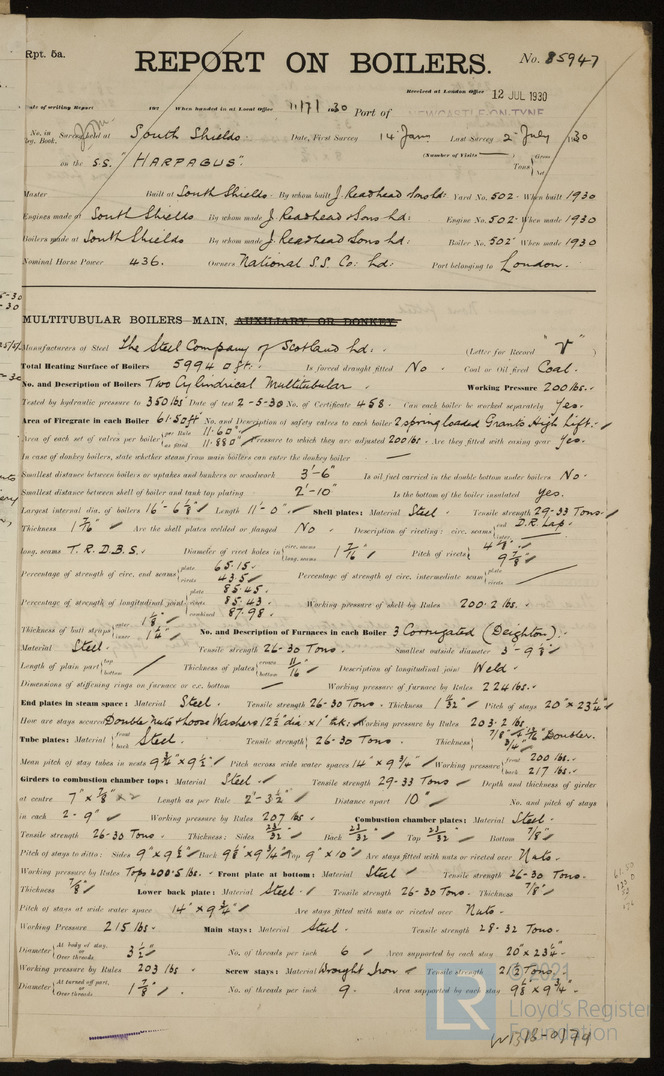 Rpt. 5a.
REPORT ON BOILERS.
No. 85947
Received at London Office 12 JUL 1930
Date of writing Report 192 When handed in at Local Office 11/7/1930 Port of NEWCASTLE-ON-TYNE
No. in Reg. Book. Survey held at South Shields Date, First Survey 14 Jany Last Survey 2 July 1930
on the S.S. "HARPAGUS". (Number of Visits ) Tons Gross Net
Master Built at South Shields By whom built J. Readhead & Sons Ld: Yard No. 502 When built 1930
Engines made at South Shields By whom made J. Readhead & Sons Ld: Engine No. 502 When made 1930
Boilers made at South Shields By whom made J. Readhead & Sons Ld: Boiler No. 502 When made 1930
Nominal Horse Power 436. Owners National S.S. Co: Ld: Port belonging to London.
MULTITUBULAR BOILERS MAIN, AUXILIARY OR DONKEY.
Manufacturers of Steel The Steel Company of Scotland Ld: (Letter for Record "V" )
Total Heating Surface of Boilers 5994 □ft. Is forced draught fitted No Coal or Oil fired Coal.
No. and Description of Boilers Two Cylindrical Multitubular Working Pressure 200 lbs.
Tested by hydraulic pressure to 350 lbs Date of test 2-5-30 No. of Certificate 458 Can each boiler be worked separately Yes.
Area of Firegrate in each Boiler 61.5 □ft No. and Description of safety valves to each boiler 2 spring loaded Grants High Lift
Area of each set of valves per boiler per Rule 11.60 as fitted 11.88 Pressure to which they are adjusted 200 lbs Are they fitted with easing gear Yes.
In case of donkey boilers, state whether steam from main boilers can enter the donkey boiler —
Smallest distance between boilers or uptakes and bunkers or woodwork 3'-6" Is oil fuel carried in the double bottom under boilers No
Smallest distance between shell of boiler and tank top plating 2'-10" Is the bottom of the boiler insulated yes.
Largest internal dia. of boilers 16'-6 1/8" Length 11'-0" Shell plates: Material Steel Tensile strength 29-33 Tons.
Thickness 1 7/16" Are the shell plates welded or flanged No Description of riveting: circ. seams end D.R. Lap. inter. —
long. seams T.R.D.B.S. Diameter of rivet holes in circ. seams long. seams 1 7/16" Pitch of rivets 4 1/8" 9 7/8"
Percentage of strength of circ. end seams plate 65.15 rivets 43.5 Percentage of strength of circ. intermediate seam plate rivets —
Percentage of strength of longitudinal joint plate 85.45 rivets 85.43 combined 87.98 Working pressure of shell by Rules 200.2 lbs.
Thickness of butt straps outer 1 1/8" inner 1 1/4" No. and Description of Furnaces in each Boiler 3 Corrugated (Deighton).
Material Steel. Tensile strength 26-30 Tons. Smallest outside diameter 3'-9 1/8"
Length of plain part top bottom Thickness of plates crown bottom 11/16 Description of longitudinal joint Weld
Dimensions of stiffening rings on furnace or c.c. bottom — Working pressure of furnace by Rules 224 lbs.
End plates in steam space: Material Steel. Tensile strength 26-30 Tons Thickness 1 11/32" Pitch of stays 20" x 23 1/4"
How are stays secured Double Nuts & Loose Washers 12 1/2" dia: x 1" tk. Working pressure by Rules 203.2 lbs
Tube plates: Material front back Steel. Tensile strength 26-30 Tons. Thickness 7/8" Doubler. 3/4"
Mean pitch of stay tubes in nests 9 3/4" x 9 1/2" Pitch across wide water spaces 14" x 9 3/4" Working pressure front 200 lbs. back 217 lbs.
Girders to combustion chamber tops: Material Steel Tensile strength 29-33 Tons Depth and thickness of girder
at centre 7" x 7/8" x 2 Length as per Rule 2'-3 1/2" Distance apart 10" No. and pitch of stays
in each 2-9" Working pressure by Rules 207 lbs Combustion chamber plates: Material Steel.
Tensile strength 26-30 Tons Thickness: Sides 23/32" Back 23/32" Top 23/32" Bottom 7/8"
Pitch of stays to ditto: Sides 9" x 9 1/2" Back 9 1/8" x 9 3/4" Top 9" x 10" Are stays fitted with nuts or riveted over Nuts.
Working pressure by Rules Top 200.5 lbs. Front plate at bottom: Material Steel Tensile strength 26-30 Tons.
Thickness 7/8" Lower back plate: Material Steel Tensile strength 26-30 Tons Thickness 7/8"
Pitch of stays at wide water space 14" x 9 3/4" Are stays fitted with nuts or riveted over Nuts
Working Pressure 215 lbs Main stays: Material Steel Tensile strength 28-32 Tons.
Diameter At body of stay, or Over threads. 3 1/2" No. of threads per inch 6 Area supported by each stay 20" x 23 1/4"
Working pressure by Rules 203 lbs Screw stays: Material Wrought Iron Tensile strength 21 1/2 Tons
Diameter At turned off part, or Over threads. 1 7/8" No. of threads per inch 9 Area supported by each stay 9 1/8" x 9 3/4"
2021
LR Lloyd's Register Foundation
W1318-0194